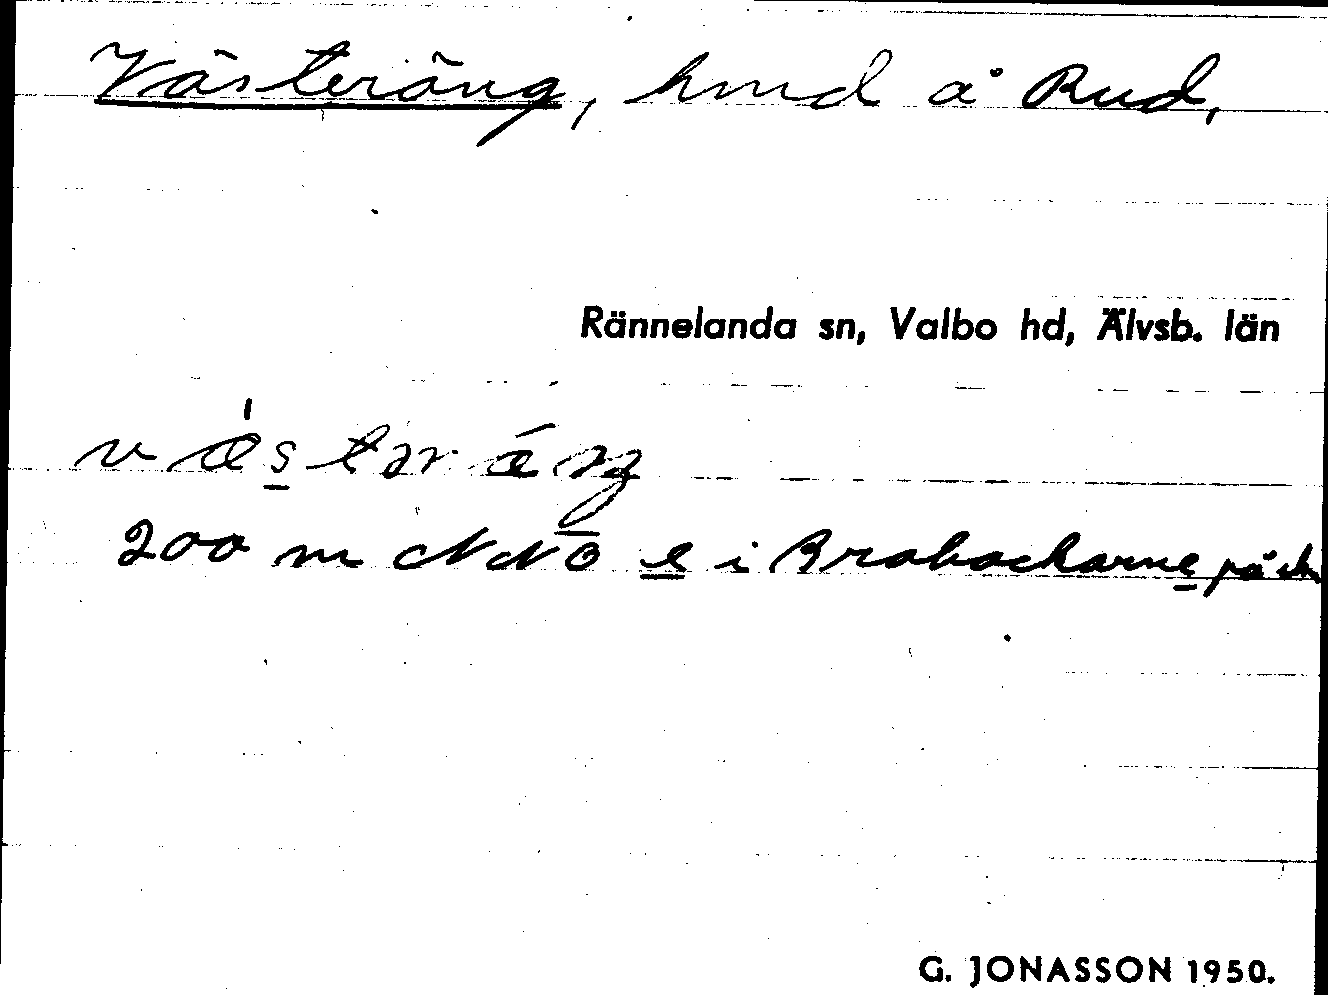 Västeräng, hmd å Rud,
Rännelanda sn, Valbo hd, Älvsb. län
væ̀stərǽŋ
200 m NNO e i Brobackarne på
G. JONASSON 1950.